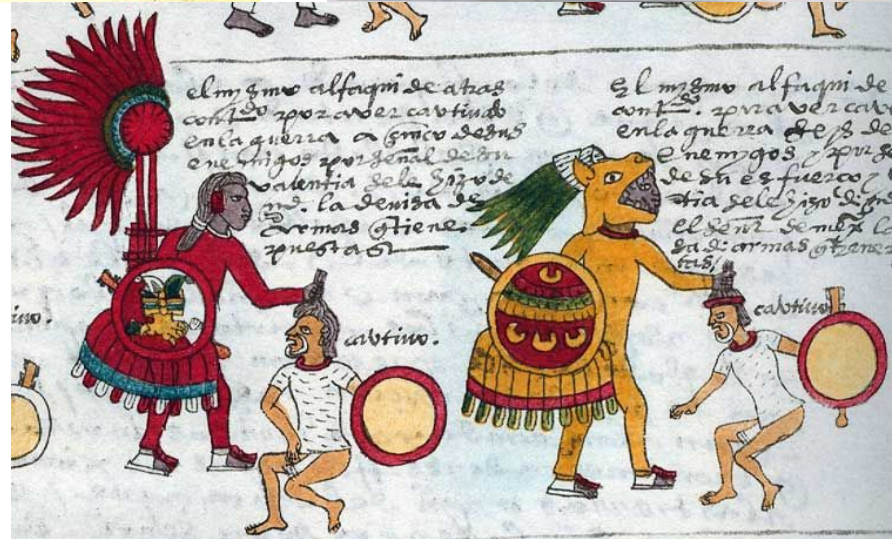 el mysmo alfaqui de atras
contdo. por aver cautivado
en la guerra a cinco de sus
enemigos por señal de su
valentia se le hizo de
md. la devisa de
armas q tiene
puesta
cautivo.
El mysmo alfaqui de
contdo. por aver cav
en la guerra seys de
enemygos y por se
de su esfuerço y
tia se le hizo
el señor de mexco la
sa de armas q tiene
tas/
cautivo.